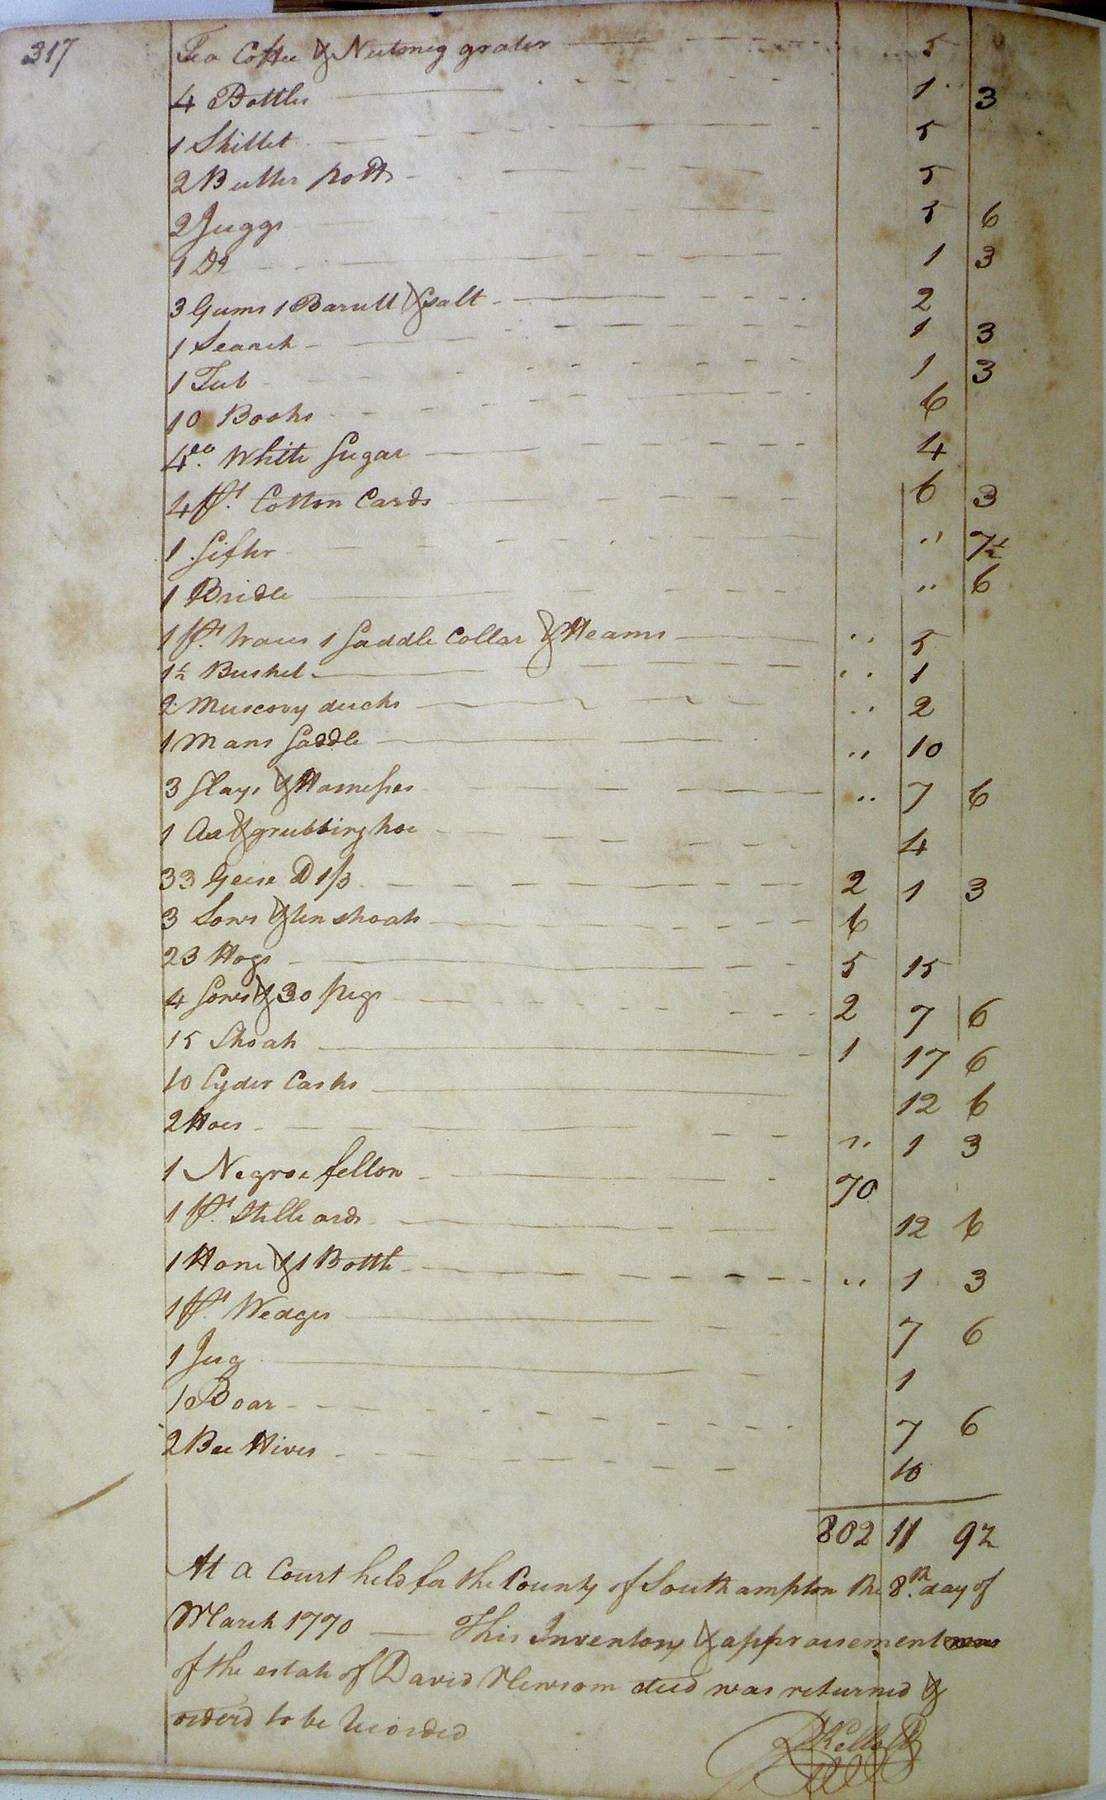 317
Tea Coffee & Nutmeg grater 5
4 Bottles 1 3
1 Skillet 5
2 Butter potts 5
2 Juggs 5 6
1 Do 1 3
3 Gums 1 Barrell & Salt 2
1 Search 1 3
1 Tub 1 3
10 Books 6
4 White Sugar 4
4 pr. Cotton Cards 6 3
1 Sifter " 7½
1 Bridle " 6
1 pr. traces 1 Saddle Collar & Heams " 5
1½ Bushel " 1
2 Muscovy ducks " 2
1 Mans Saddle " 10
3 Slays & Harnesses " 7 6
1 Ax & grubbing hoe 4
33 Geese @ 1/3 2 1 3
3 Sows & ten shoats 6
23 Hogs 5 15
4 Sows & 30 pigs 2 7 6
15 Shoats 1 17 6
10 Cyder Casks 12 6
2 Hoes " 1 3
1 Negroe fellow 70
1 pr. Stilleards 12 6
1 Hone & 1 Bottle " 1 3
1 pr. Wedges 7 6
1 Jug 1
1 Boar 7 6
2 Bee Hives 10
802 11 9½
At a Court held for the County of Southampton the 8th day of
March 1770 — This Inventory & appraisement
of the estate of David Newsom decd was returned &
orderd to be recorded